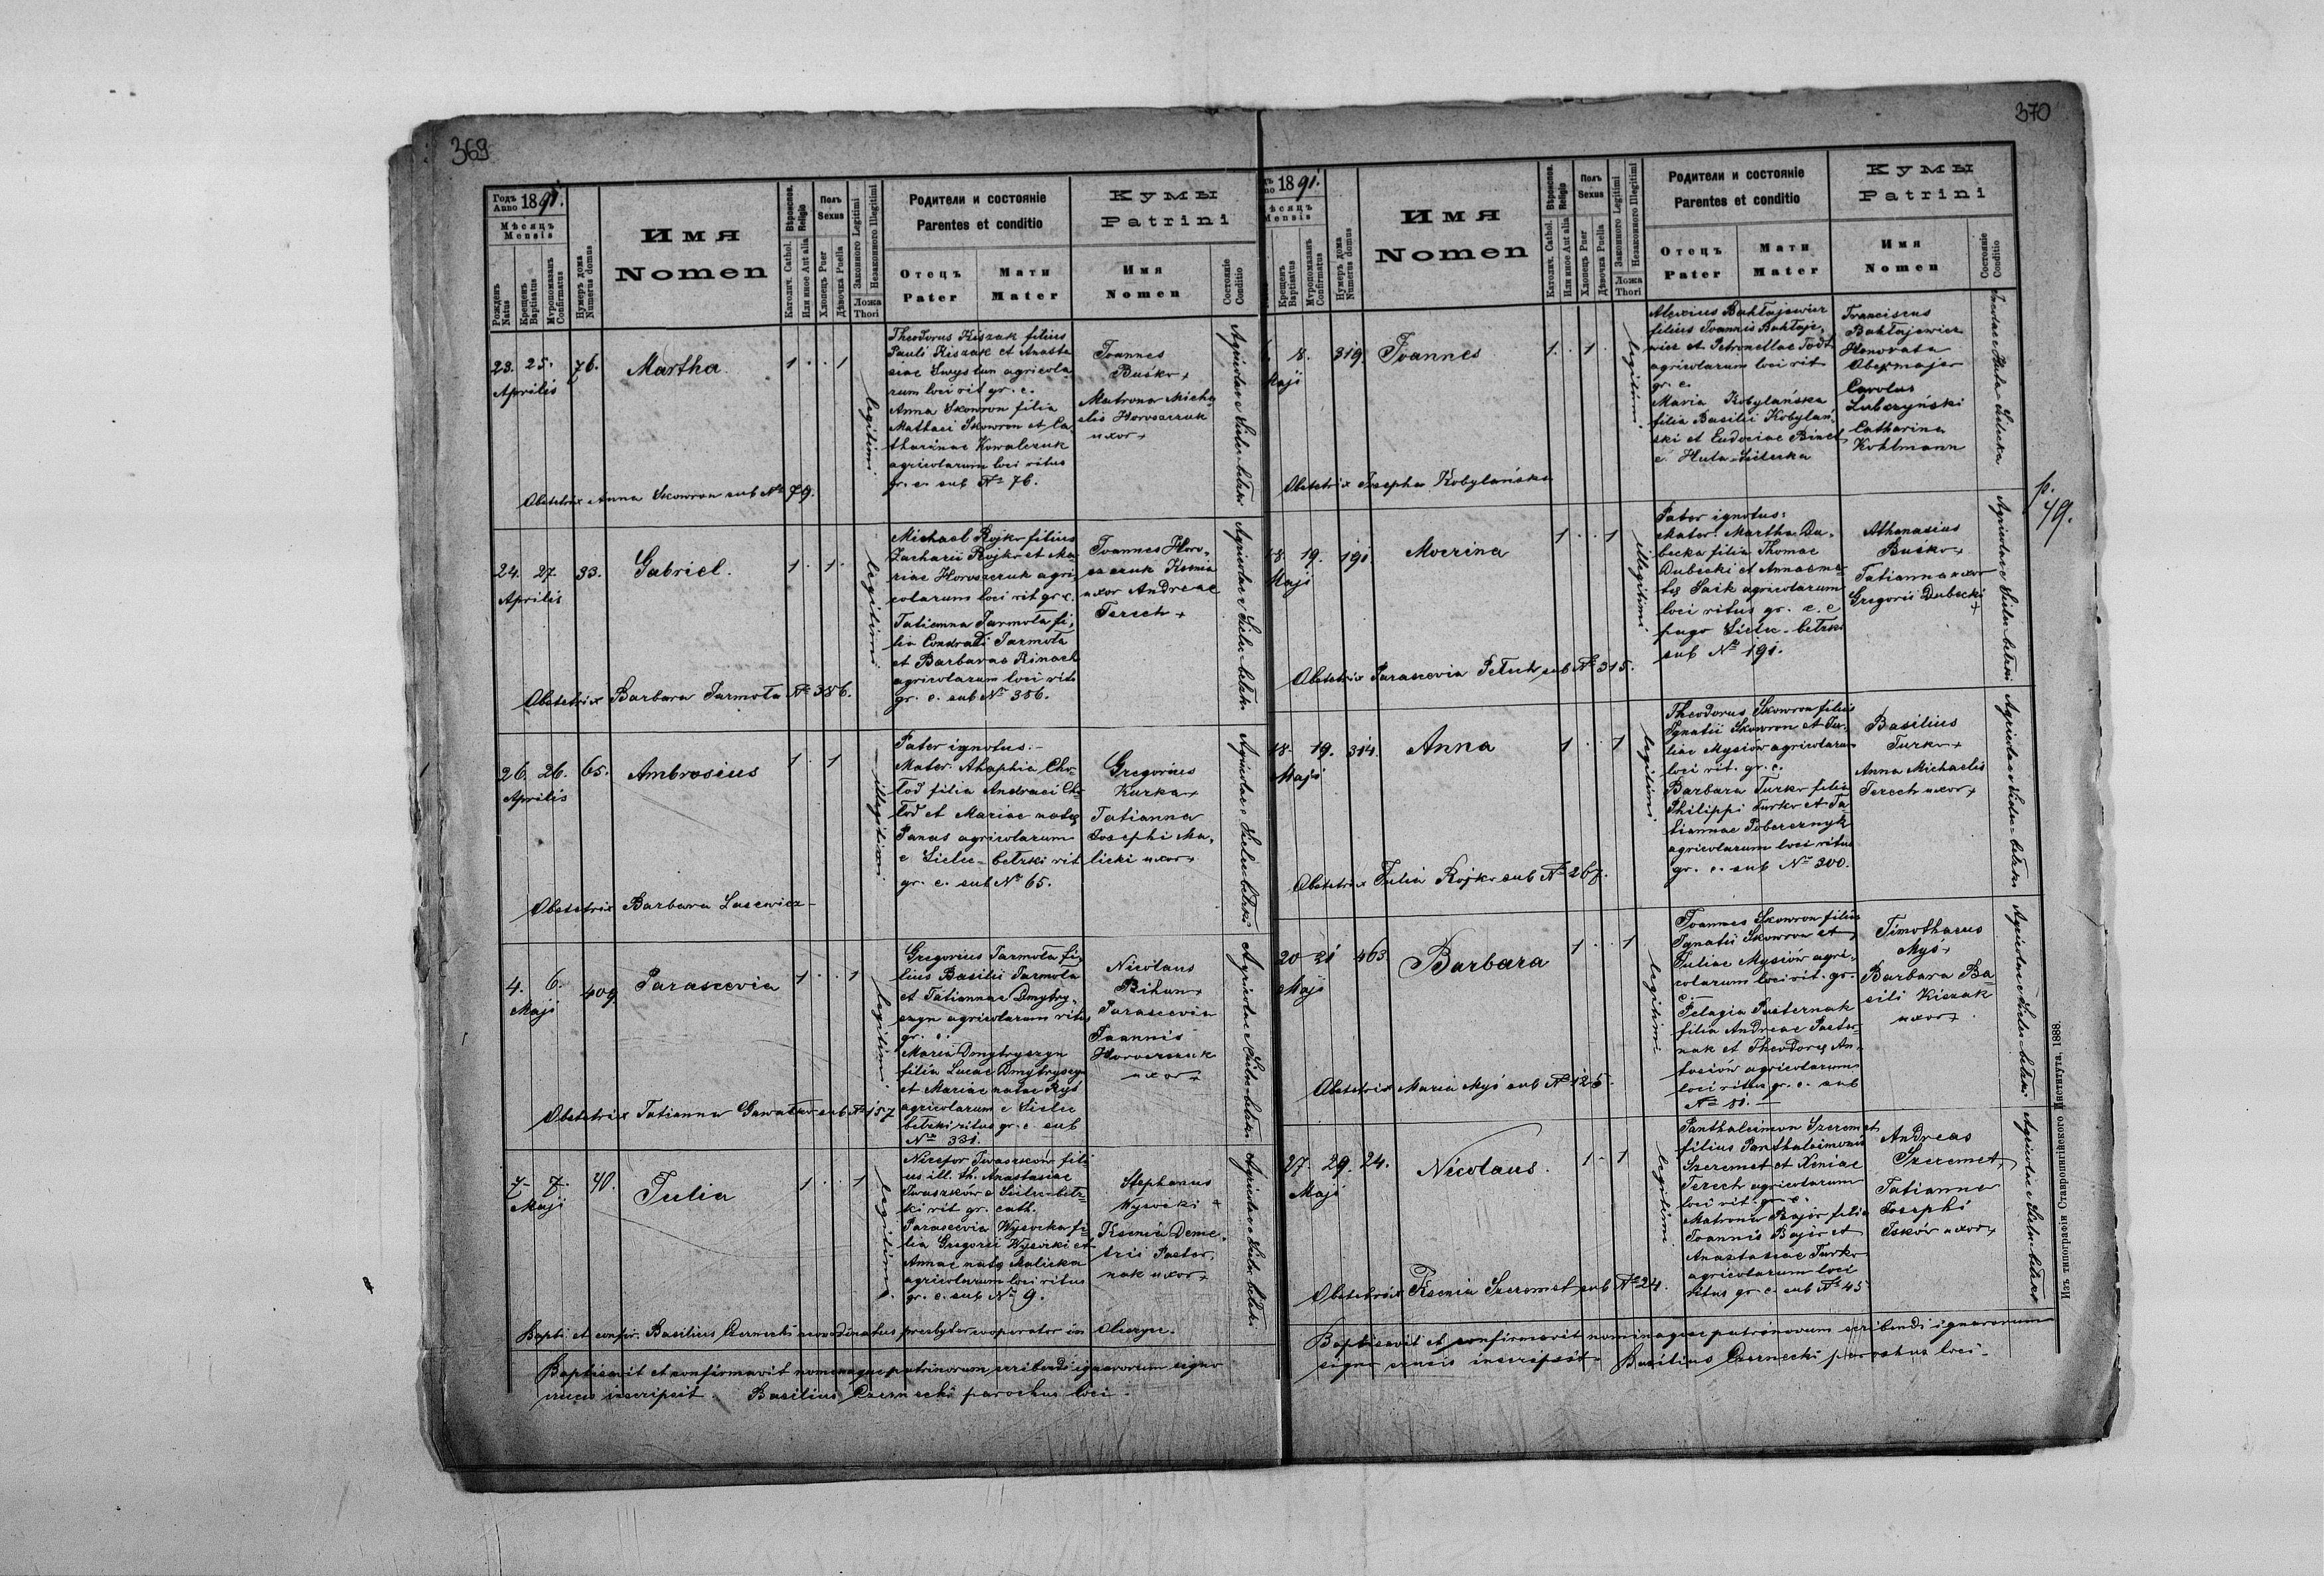 369
Годъ Anno 1891.
Мѣсяцъ
Mensis
Рожденъ Natus
Крещенъ Baptisatus
Мѵропомазанъ Confirmatus
Нумеръ дома Numerus domus
Имя
Nomen
Вѣроиспов. Religio
Католич. Cathol.
Или иное Aut alia
Полъ
Sexus
Хлопецъ Puer
Дѣвочка Puella
Законного Legitimi
Незаконного Illegitimi
Ложа
Thori
Родители и состояніе
Parentes et conditio
Отецъ
Pater
Мати
Mater
Кумы
Patrini
Имя
Nomen
Состояніе
Conditio
23. 25. 76. Martha 1 . . 1 legitimi
Aprilis
Theodorus Kiszak filius
Pauli Kiszak et Anasta
siae Swystun agricola
rum loci rit gr. c.
Anna Skowron filia
Mathaei Skowron et Ca
tharinae Kowalczuk
agricolarum loci ritus
gr. c. sub No 76.
Joannes
Buśko +
Matrona Micha
elis Horoszczuk
uxor +
Agricolae e Sielec-bełzki
Obstetrix Anna Skowron sub No 79.
24. 27. 33. Gabriel. 1 . 1 . legitimi
Aprilis
Michael Rojko filius
Zacharii Rojko et Ma
riae Horoszczuk agri
colarum loci rit gr. c.
Tatianna Jarmoła fi
lia Condrati Jarmoła
et Barbarae Rinach
agricolarum loci rit
gr. c. sub No 386.
Joannes Horo
szczuk Ksenia
uxor Andreae
Terech +
Agricolae e Sielec-bełzki
Obstetrix Barbara Jarmoła No 386.
26. 26. 65. Ambrosius 1 . 1 illegitimi
Aprilis
Pater ignotus.-
Mater. Ahaphia Cho
łod filia Andreae Cho
łod et Mariae natae
Panas agricolarum
e Sielec-bełzki rit
gr. c. sub No 65.
Gregorius
Kurka +
Tatianna
Josephi Ma
licki uxor +
Agricolae e Sielec-bełzki
Obstetrix Barbara Lasewicz
4. 6. 409 Parascevia 1 . . 1 legitimi
Maji
Gregorius Jarmoła fi
lius Basilii Jarmoła
et Tatiannae Dmytry
szyn agricolarum ritus
gr. c.
Maria Dmytryszyn
filia Lucae Dmytryszyn
et Mariae natae Ryś
agricolarum e Sielec
bełzki ritus gr. c. sub
No 331.
Nicolaus
Bihun +
Parascevia
Joannis
Horoszczuk
uxor +
Agricolae e Sielec-bełzki
Obstetrix Tatianna sub No 157
7. 7. 40. Julia 1 . . 1 legitimi
Maji
Nicefor Iwaszków fili
us ill. th. Anastasiae
Iwaszków e Sielec-bełz
ki rit gr. cath.
Parascevia Wysocka fi
lia Gregorii Wysocki et
Annae natae Malicka
agricolarum loci ritus
gr. c. sub No 9.
Stephanus
Wysocki +
Ksenia Deme
trii Paster
nak uxor +
Agricolae e Sielec bełzki
Bapti. et confir. Basilius Czernecki presbyter cooperator in
Baptisavit et confirmavit nominaque patrinorum scribendi ignarorum signo
crucis inscripsit. Basilius Czernecki parochus loci.
370
1891.
Мѣсяцъ
Mensis
Крещенъ Baptisatus
Мѵропомазанъ Confirmatus
Нумеръ дома Numerus domus
Имя
Nomen
Вѣроиспов. Religio
Католич. Cathol.
Или иное Aut alia
Полъ
Sexus
Хлопецъ Puer
Дѣвочка Puella
Законного Legitimi
Незаконного Illegitimi
Ложа
Thori
Родители и состояніе
Parentes et conditio
Отецъ
Pater
Мати
Mater
Кумы
Patrini
Имя
Nomen
Состояніе
Conditio
8. 319. Joannes 1 . 1 . legitimi
Maji
Alexius Bakłajewicz
filius Joannis Bakłaje
wicz et Petronellae Todt
agricolarum loci rit
gr. c.
Maria Kobylańska
filia Basilii Kobylań
ski et Eudociae Binet
e Huta-Sielecka
Franciscus
Bakłajewicz
Honorata
Obexmajer
Carolus
Lubczyński
Catharina
Kohlmann
Incolae e Huta-Sielecka
Obstetrix Josepha Kobylańska
18. 19. 191. Mocrina 1 . . 1 illegitimi
Maji
Pater ignotus:
Mater. Martha Du
becka filia Thomae
Dubecki et Annae na
tae Saik agricolarum
loci ritus gr. c. e
pago Sielec-bełzki
sub No 191.
Athanasius
Buśko +
Tatianna uxor
Gregorii Dubecki
+
Agricolae e Sielec-bełzki
p.
49.
Obstetrix Parascevia Petuch sub No 315.
18. 19. 314. Anna 1 . 1 legitimi
Maji
Theodorus Skowron filius
Ignatii Skowron et Ju
liae Mysiów agricolarum
loci rit. gr. c.
Barbara Turko filia
Philippi Turko et Ta
tiannae Pobereznyk
agricolarum loci ritus
gr. c. sub No 300.
Basilius
Turko +
Anna Michaelis
Terech uxor +
Agricolae e Sielec-bełzki
Obstetrix Julia Rojko sub No 267.
20 21 463 Barbara 1 . 1 legitimi
Maji
Joannes Skowron filius
Ignatii Skowron et
Juliae Mysiów agri
colarum loci rit. gr.
c.
Pelagia Pasternak
filia Andreae Paster
nak et Theodorae An
tosiów agricolarum
loci ritus gr. c. sub
No 81.-
Timotheus
Myś +
Barbara Ba
sili Kiszak
uxor +
Agricolae e Sielec-bełzki
Obstetrix Maria Myś sub No 125.
27 29. 24. Nicolaus. 1 . 1 legitimi
Maji
Panthaleimon Szeremet
filius Panthaleimonis
Szeremet et Xeniae
Terech agricolarum
loci rit. gr. c.
Matrona Bajór filia
Joannis Bajór et
Anaztasiae Turko
agricolarum loci
ritus gr. c. sub No 45
Andreas
Szeremet +
Tatianna
Josephi
Isków uxor +
Agricolae e Sielec-bełzki
Obstetrix Ksenia Szeremet sub No 24.
Baptisavit et confirmavit nominaque patrinorum scribendi ignarorum
signo crucis inscripsit. Basilius Czernecki parochus loci.
Изъ типографіи Ставропигійского Института. 1888.